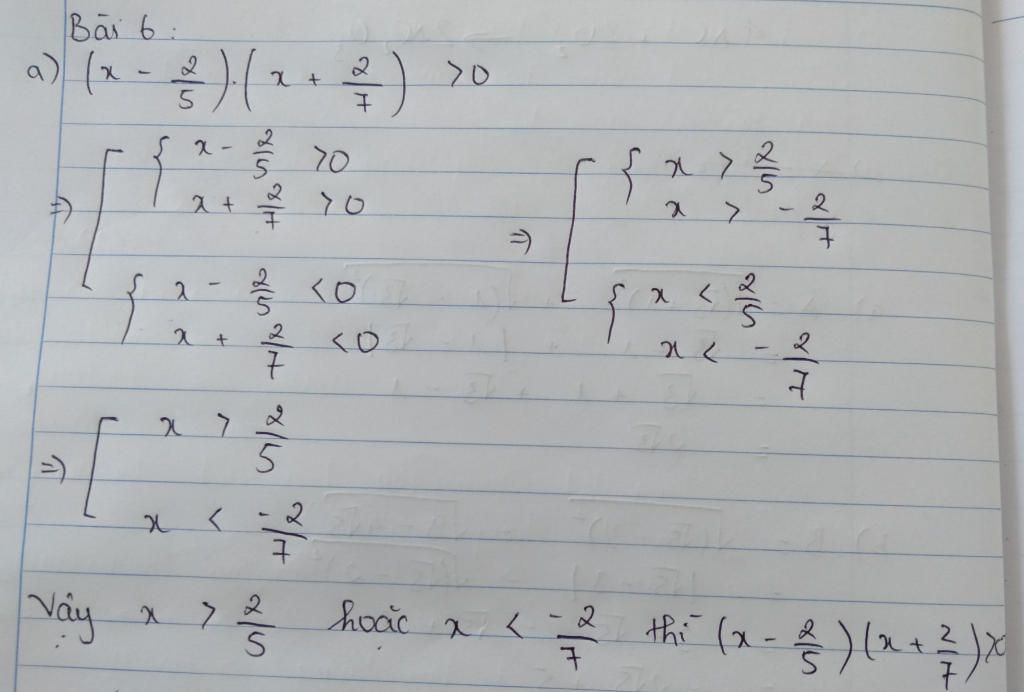 Bài 6:
a) (x - 2/5).(x + 2/7) >0
=> [ { x - 2/5 >0
x + 2/7 >0
{ x - 2/5 <0
x + 2/7 <0
=> [ { x > 2/5
x > - 2/7
{ x < 2/5
x < - 2/7
=> [ x > 2/5
x < -2/7
Vậy x > 2/5 hoặc x < -2/7 thì (x - 2/5)(x + 2/7)>0